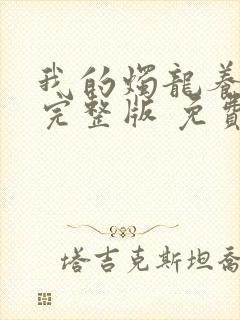 我的燭龍養
完整版 免費
塔吉克斯坦喬